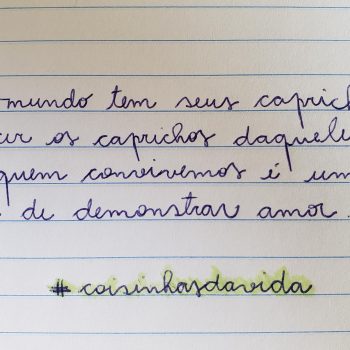 mundo tem seus caprich
os caprichos daquele
quem convivemos é um
de demonstrar amor.
#coisinhasdavida